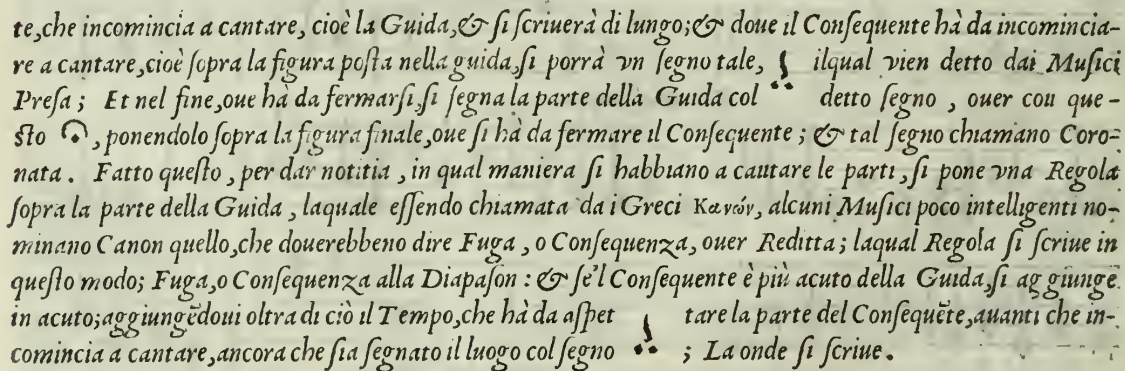 te, che incomincia a cantare, cioè la Guida, & ſi ſcriuerà di lungo; & doue il Conſequente hà da incomincia-
re a cantare, cioè ſopra la figura poſta nella guida, ſi porrà vn ſegno tale, ilqual vien detto dai Muſici
Preſa; Et nel fine, oue hà da fermarſi, ſi ſegna la parte della Guida col detto ſegno, ouer con que-
ſto 𝄐, ponendolo ſopra la figura finale, oue ſi hà da fermare il Conſequente; & tal ſegno chiamano Coro-
nata. Fatto queſto, per dar notitia, in qual maniera ſi habbiano a cantare le parti, ſi pone vna Regola
ſopra la parte della Guida, laquale eſſendo chiamata da i Greci Κανών, alcuni Muſici poco intelligenti no-
minano Canon quello, che douerebbeno dire Fuga, o Conſequenza, ouer Reditta; laqual Regola ſi ſcriue in
queſto modo; Fuga, o Conſequenza alla Diapaſon: & ſe'l Conſequente è più acuto della Guida, ſi aggiunge
in acuto; aggiungẽdoui oltra di ciò il Tempo, che hà da aſpettare la parte del Conſequẽte, auanti che in-
comincia a cantare, ancora che ſia ſegnato il luogo col ſegno ; La onde ſi ſcriue.